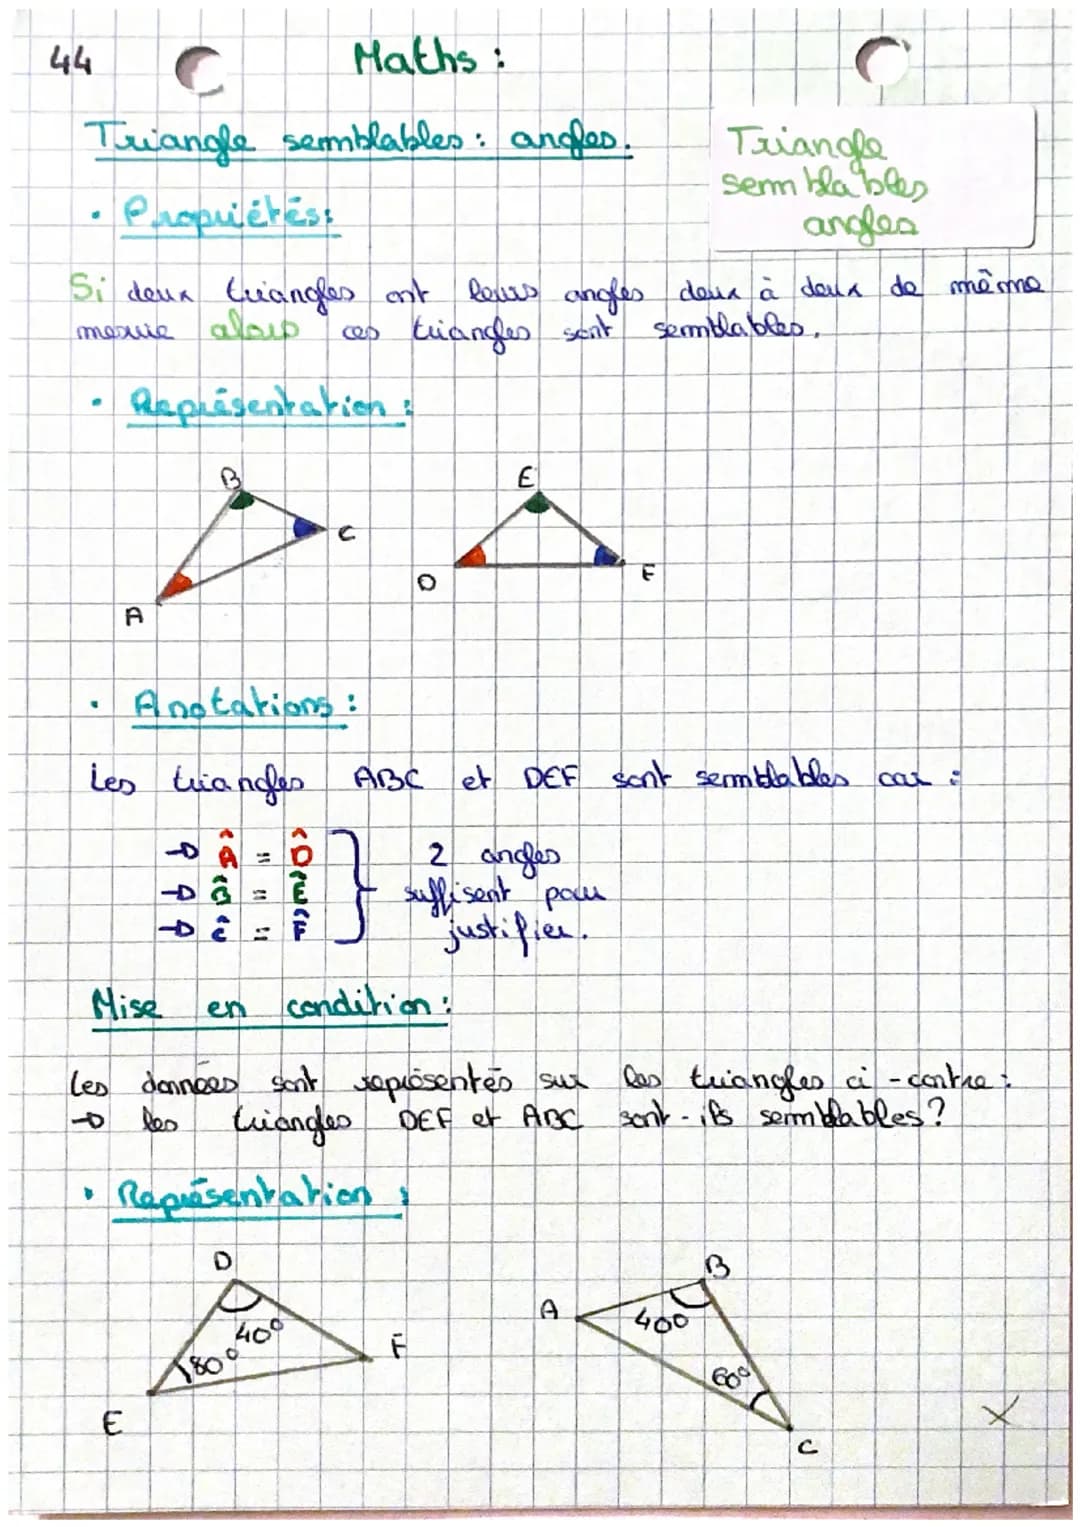 44
Maths :
Triangle semblables : angles.
Triangle
semblables
angles
• Propriétés:
Si deux triangles ont leurs angles deux à deux de même
mesure alors ces triangles sont semblables.
• Représentation :
B
C
A
E
D
F
• Anotations :
Les triangles ABC et DEF sont semblables car :
→ Â = D̂
→ B̂ = Ê
→ Ĉ = F̂
2 angles
suffisent pour
justifier.
Mise en condition :
Les données sont représentés sur les triangles ci-contre :
→ les triangles DEF et ABC sont-ils semblables ?
• Représentation :
D
40°
80°
F
E
A
B
40°
60°
C
X